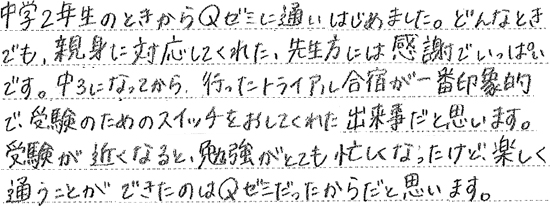 中学2年生のときからQゼミに通いはじめました。どんなとき
でも、親身に対応してくれた、先生方には感謝でいっぱい
です。中3になってから、行ったトライアル合宿が一番印象的
で、受験のためのスイッチをおしてくれた出来事だと思います。
受験が近くなると、勉強がとても忙しくなったけど、楽しく
通うことができたのはQゼミだったからだと思います。